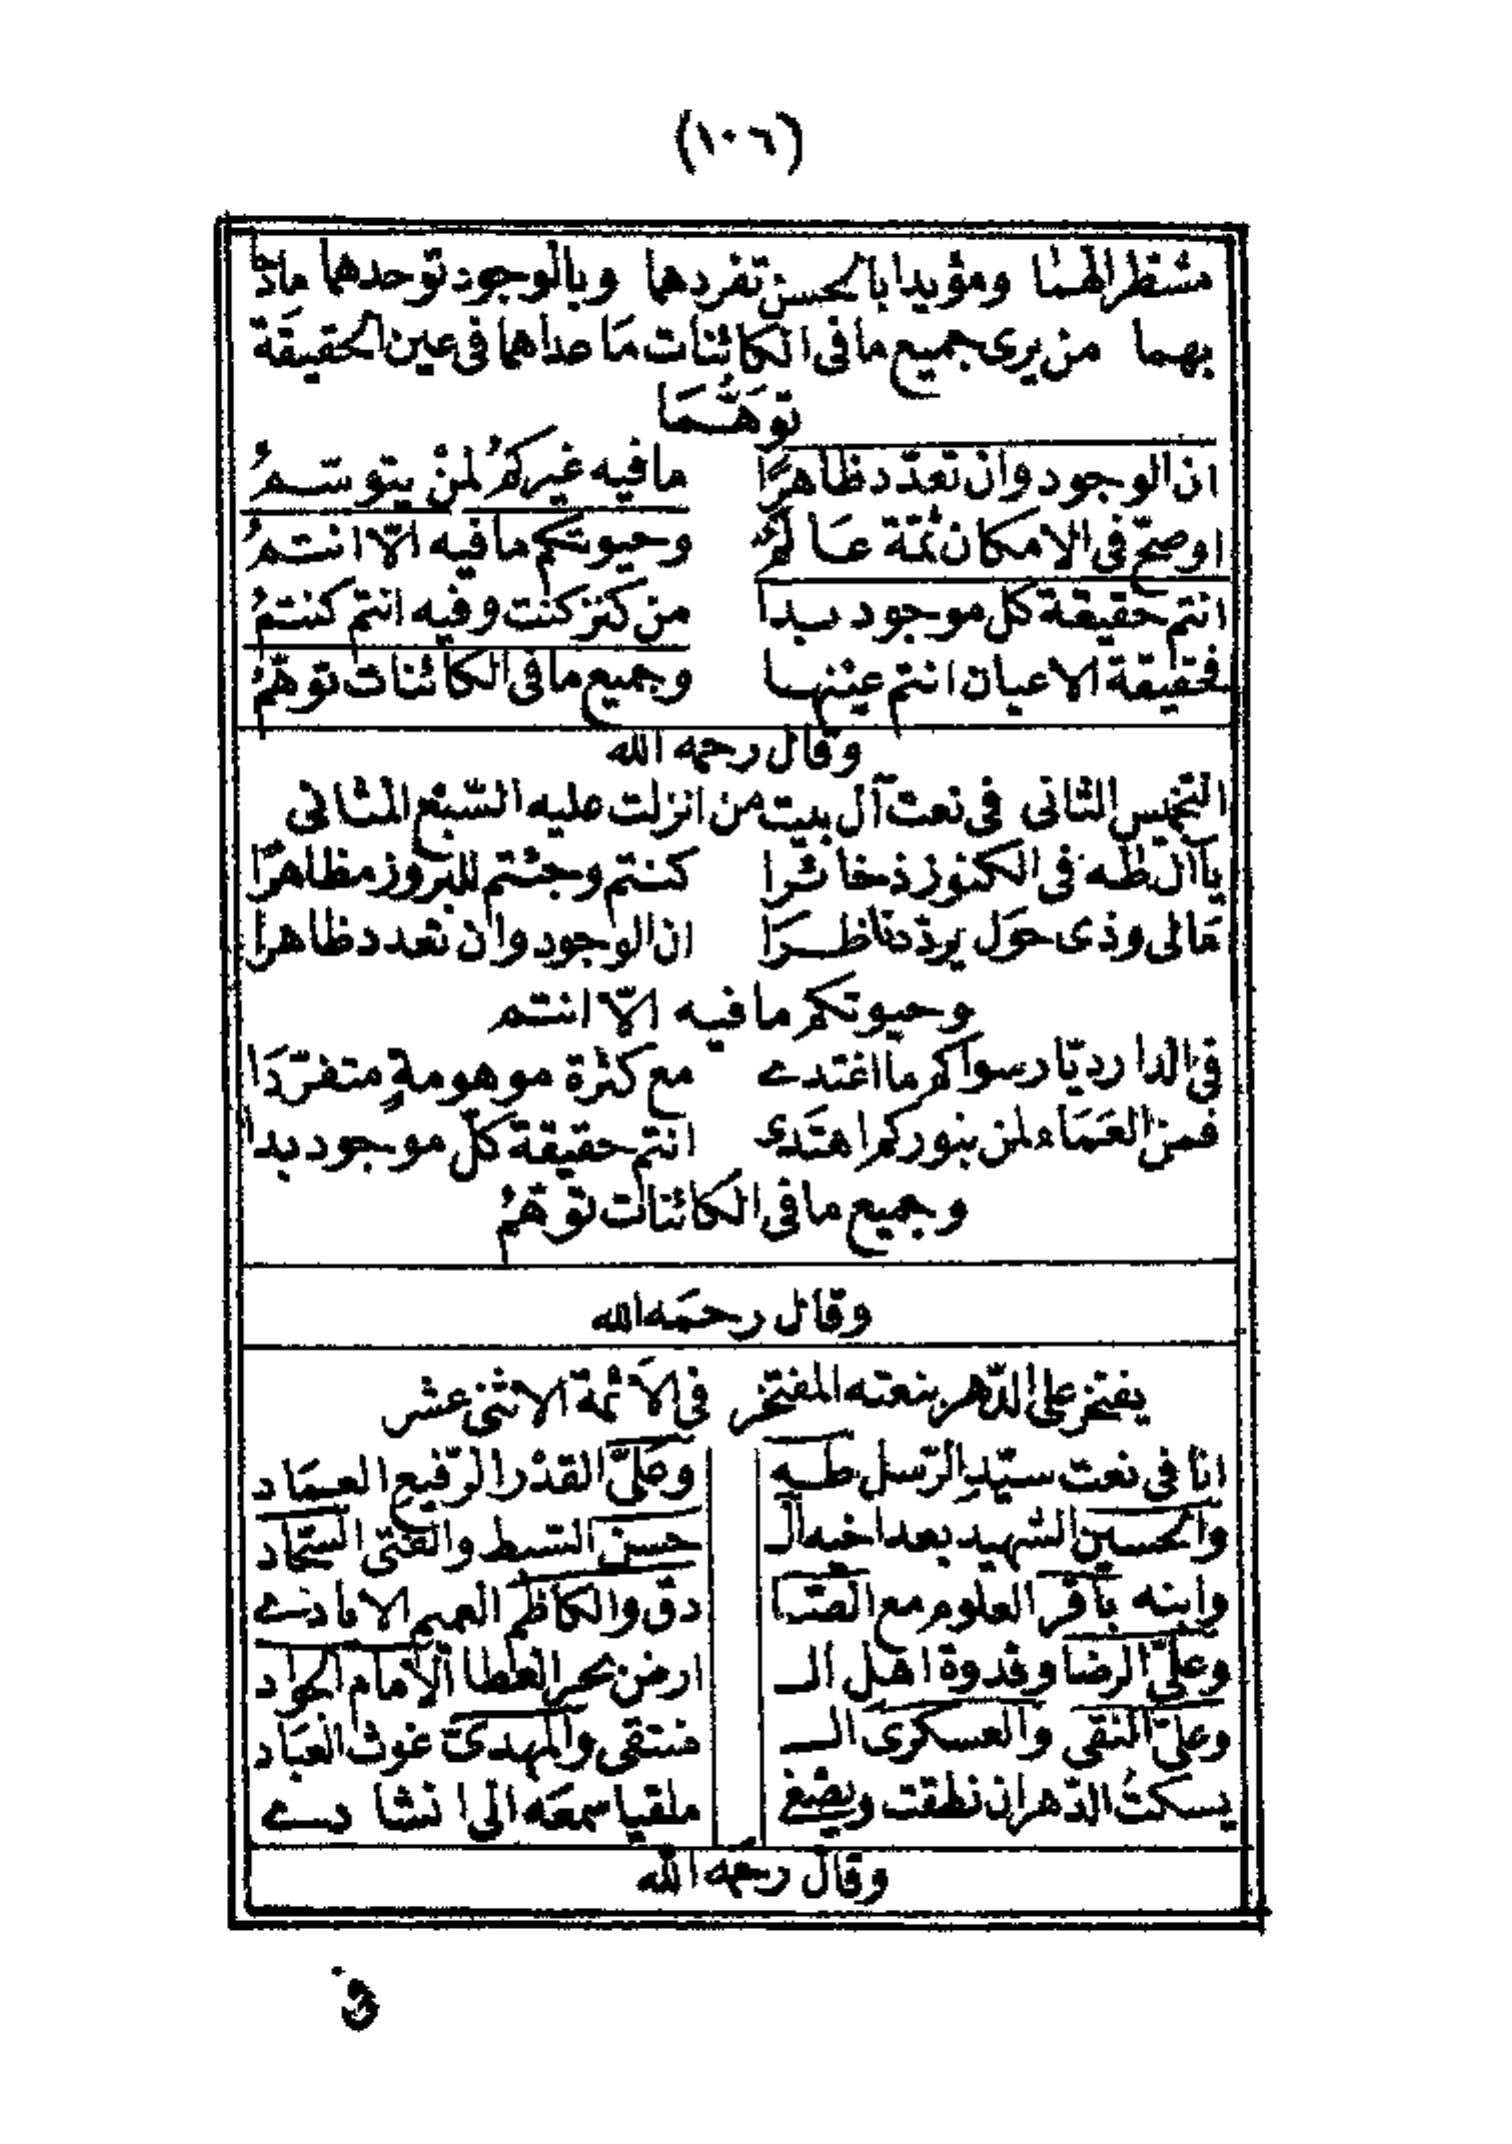 (١٠٦)
مشطرا لهما ومؤيدا بالحسن تفردهما وبالوجود توحدهما مادحا
بهما من يرى جميع ما فى الكائنات ما عداهما فى عين الحقيقة
توهما
ان الوجود وان تعدّد ظاهرًا ما فيه غيركمُ لمنْ يتوسّمُ
او صحّ فى الامكان ثمّة عالمٌ وحيوتكم ما فيه الّا انتمُ
انتم حقيقة كل موجود بدا من كنز كنت وفيه انتم كنتمُ
فحقيقة الاعيان انتم عينها وجميع ما فى الكائنات توهّمُ
وقال رحمه الله
التخميس الثانى فى نعت آل بيت من انزلت عليه السّبع المثانى
يا آل طٰه فى الكنوز ذخائرا كنتم وجئتم للبروز مظاهرًا
مالى وذى حَول يردّد ناظرَا ان الوجود وان تعدد ظاهرا
وحيوتكم ما فيه الّا انتم
فى الدار ديّار سواكم ما اغتدے مع كثرة موهومةٍ متفرّدَا
فمن العَمَاء لمن بنوركم اهتَدے انتم حقيقة كلّ موجود بدا
وجميع ما فى الكائنات توهّمُ
وقال رحمَه الله
يفتخر على الدّهر بنعته المفتخر فى الأئمة الاثنى عشر
انا فى نعت سيّدِ الرّسل طٰه وعَلىّ القدْر الرّفيع العمَاد
والحسين الشهيد بعد اخيه الـ حسن السّبط والفتى السّجاد
وابنه باقر العلوم مع الصّا دق والكاظم العميم الايادے
وعلىّ الرضا وقدوة اهل الـ ارض بحر العطا الامام الجواد
وعلىّ النقى والعسكرى الـ منتقى والمهدىّ غوث العبَاد
يسكتُ الدّهر ان نطقت ويصْغى ملقيا سمعَه الى انشادے
وقال رحمه الله
فى